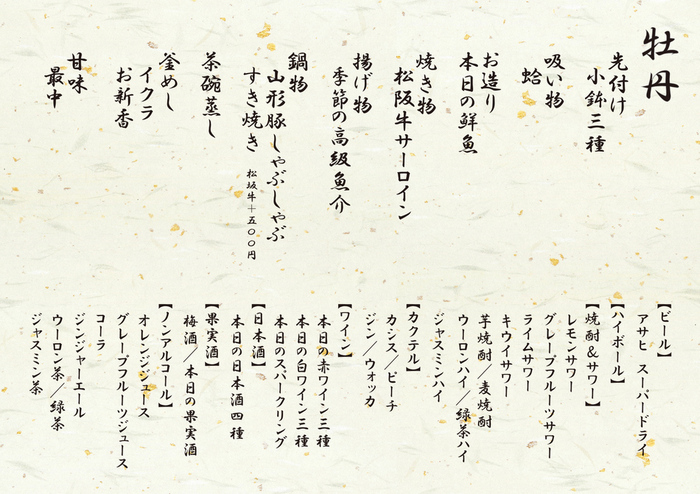 牡丹
先付け
小鉢三種
吸い物
蛤
お造り
本日の鮮魚
焼き物
松阪牛サーロイン
揚げ物
季節の高級魚介
鍋物
山形豚しゃぶしゃぶ
すき焼き 松坂牛＋五〇〇円
茶碗蒸し
釜めし
イクラ
お新香
甘味
最中
【ビール】
アサヒ スーパードライ
【ハイボール】
【焼酎＆サワー】
レモンサワー
グレープフルーツサワー
ライムサワー
キウイサワー
芋焼酎／麦焼酎
ウーロンハイ／緑茶ハイ
ジャスミンハイ
【カクテル】
カシス／ピーチ
ジン／ウォッカ
【ワイン】
本日の赤ワイン三種
本日の白ワイン三種
本日のスパークリング
【日本酒】
本日の日本酒四種
【果実酒】
梅酒／本日の果実酒
【ノンアルコール】
オレンジジュース
グレープフルーツジュース
コーラ
ジンジャーエール
ウーロン茶／緑茶
ジャスミン茶